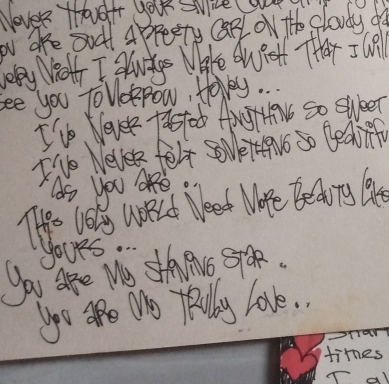 Never Thought your smile
you are such a pretty girl on the cloudy da
very Night I always Make a wish That I will
see you Tomorrow, Honey...
I've Never Tasted Anything so sweet
I've Never felt something so beautifu
as you are..
This ugly world Need More beauty like
yours...
You are My shining star.
You are My Trully Love..
times